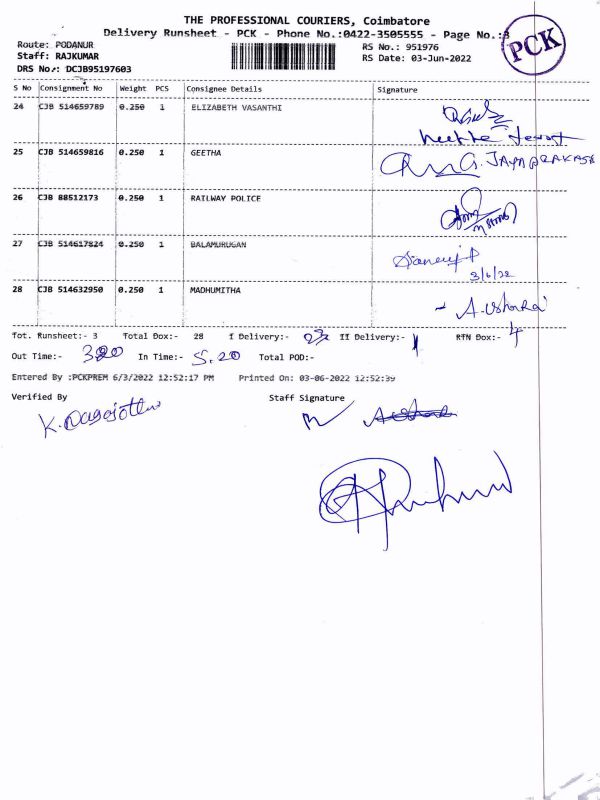 THE PROFESSIONAL COURIERS, Coimbatore
Delivery Runsheet - PCK - Phone No.:0422-3505555 - Page No.:3
PCK
Route: PODANUR
RS No.: 951976
Staff: RAJKUMAR
RS Date: 03-Jun-2022
DRS No.: DCJB95197603
S No Consignment No Weight PCS Consignee Details Signature
24 CJB 514659789 0.250 1 ELIZABETH VASANTHI
25 CJB 514659816 0.250 1 GEETHA
G. JAYAPRAKASH
26 CJB 88512173 0.250 1 RAILWAY POLICE
27 CJB 514617824 0.250 1 BALAMURUGAN
3/6/22
28 CJB 514632950 0.250 1 MADHUMITHA
Tot. Runsheet:- 3 Total Dox:- 28 I Delivery:- 23 II Delivery:- 1 RTN Dox:- 4
Out Time:- In Time:- 5.20 Total POD:-
Entered By :PCKPREM 6/3/2022 12:52:17 PM Printed On: 03-06-2022 12:52:39
Verified By Staff Signature